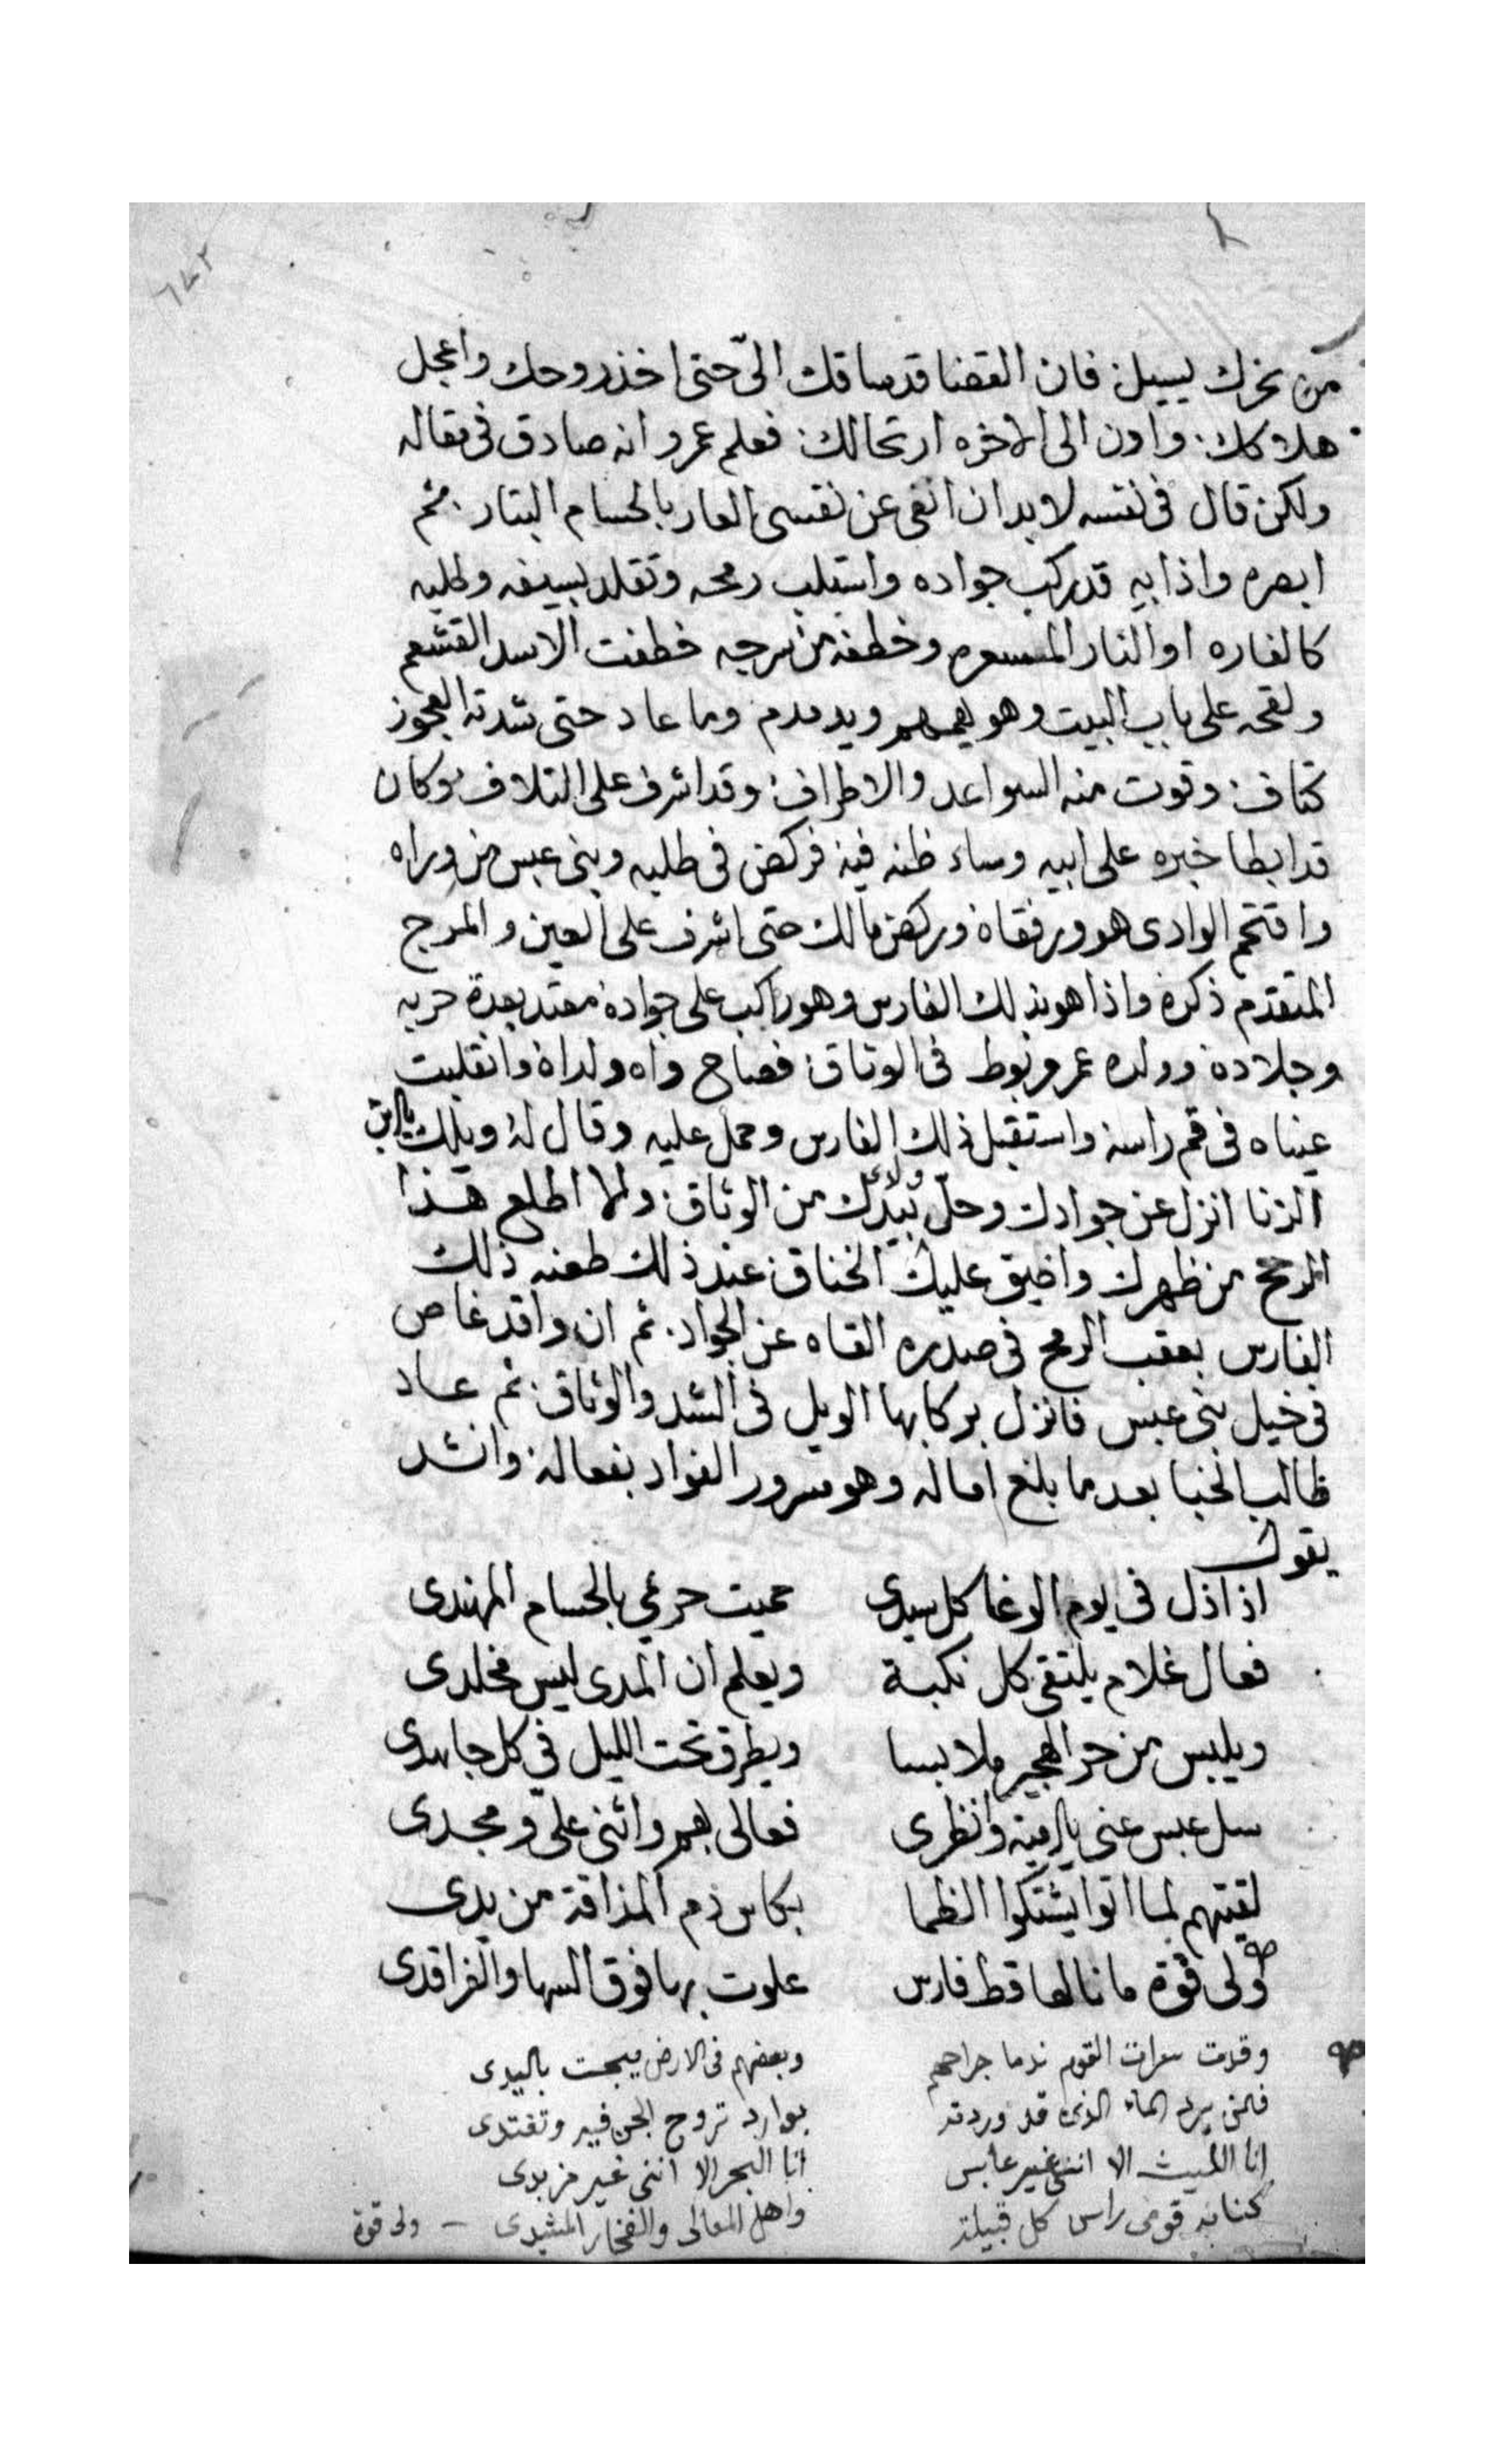 ٦٤٢
من نحرك يسيل: فان القضا قد ساقك اليّ حتى اخذ روحك واعجل
هلاكك: وادن الى الاخره ارتحالك: فعلم عمرو انه صادق في مقاله
ولكن قال في نفسه لابد ان انفي عن نفسي العار بالحسام البتار: ثم
ابصره واذا به قد ركب جواده واستلب رمحه وتقلد بسيفه وطلبه
كالغاره او النار المسعره وخطفه من سرجه خطفت الاسد القشعم
ولقحه على باب البيت وهو يهمهم ويدمدم وما عاد حتى شدته العجوز
كتاف: وقوت منه السواعد والاطراف: وقد اشرف على التلاف: وكان
قد ابطا خبره على ابيه وساء ظنه فيه فركض في طلبه وبني عبس من وراه
واقتحم الوادي هو ورفقاه وركض مالك حتى اشرف على العين والمرج
المتقدم ذكره واذا هو بذلك الفارس وهو راكب على جواده معتد بعدة حربه
وجلاده وولده عمرو مربوط في الوثاق: فصاح واه ولداه وانقلبت
عيناه في قم راسه واستقبل ذلك الفارس وحمل عليه وقال له ويلك يا ابن
الزنا انزل عن جوادك وحلّ ولدي بيدك من الوثاق: والا اطلع هذا
الرمح من ظهرك واضيق عليك الخناق: عند ذلك طعنه ذلك
الفارس بعقب الرمح في صدره القاه عن الجواد: ثم انه واقد غاص
في خيل بني عبس فانزل بركابها الويل في الشد والوثاق: ثم عاد
طالب الخبا بعد ما بلغ اماله وهو مسرور الفواد بفعاله: وانشد
يقول
اذا ذل في يوم الوغا كل سيدي حميت حريمي بالحسام المهندي
فعال غلام يلتقي كل نكبة ويعلم ان المدى ليس مخلدي
ويلبس من حر الهجير ملابسا ويطرق تحت الليل في كل جامدي
سل عبس عني يا اميه وانظري فعالى بهم واثني عليّ ومجدي
لقيتهم لما اتوا يشتكوا الظما بكاس ذم المذاقة من يدي
ولي قوة ما نالها قط فارس علوت بها فوق السها والفراقدي
وقدت سرات القوم ندما جراحهم وبعضهم في الارض يبحت باليدي
فمن يرد الماء الذي قد وردته بوارد تروح الجن فيه وتغتدي
انا الليث الا انني غير عابس انا البحر الا انني غير مزبدي
كنانه قومي راس كل قبيلة واهل المعالى والفخار المشيدي - ولي قوة